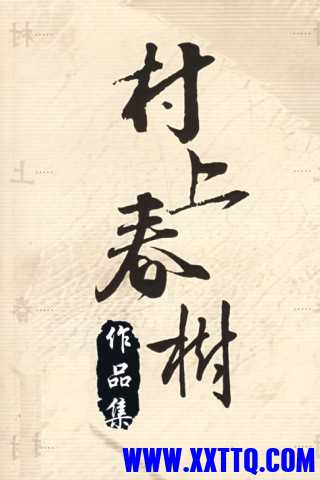 村上春樹
作品集
WWW.XXTTQ.COM